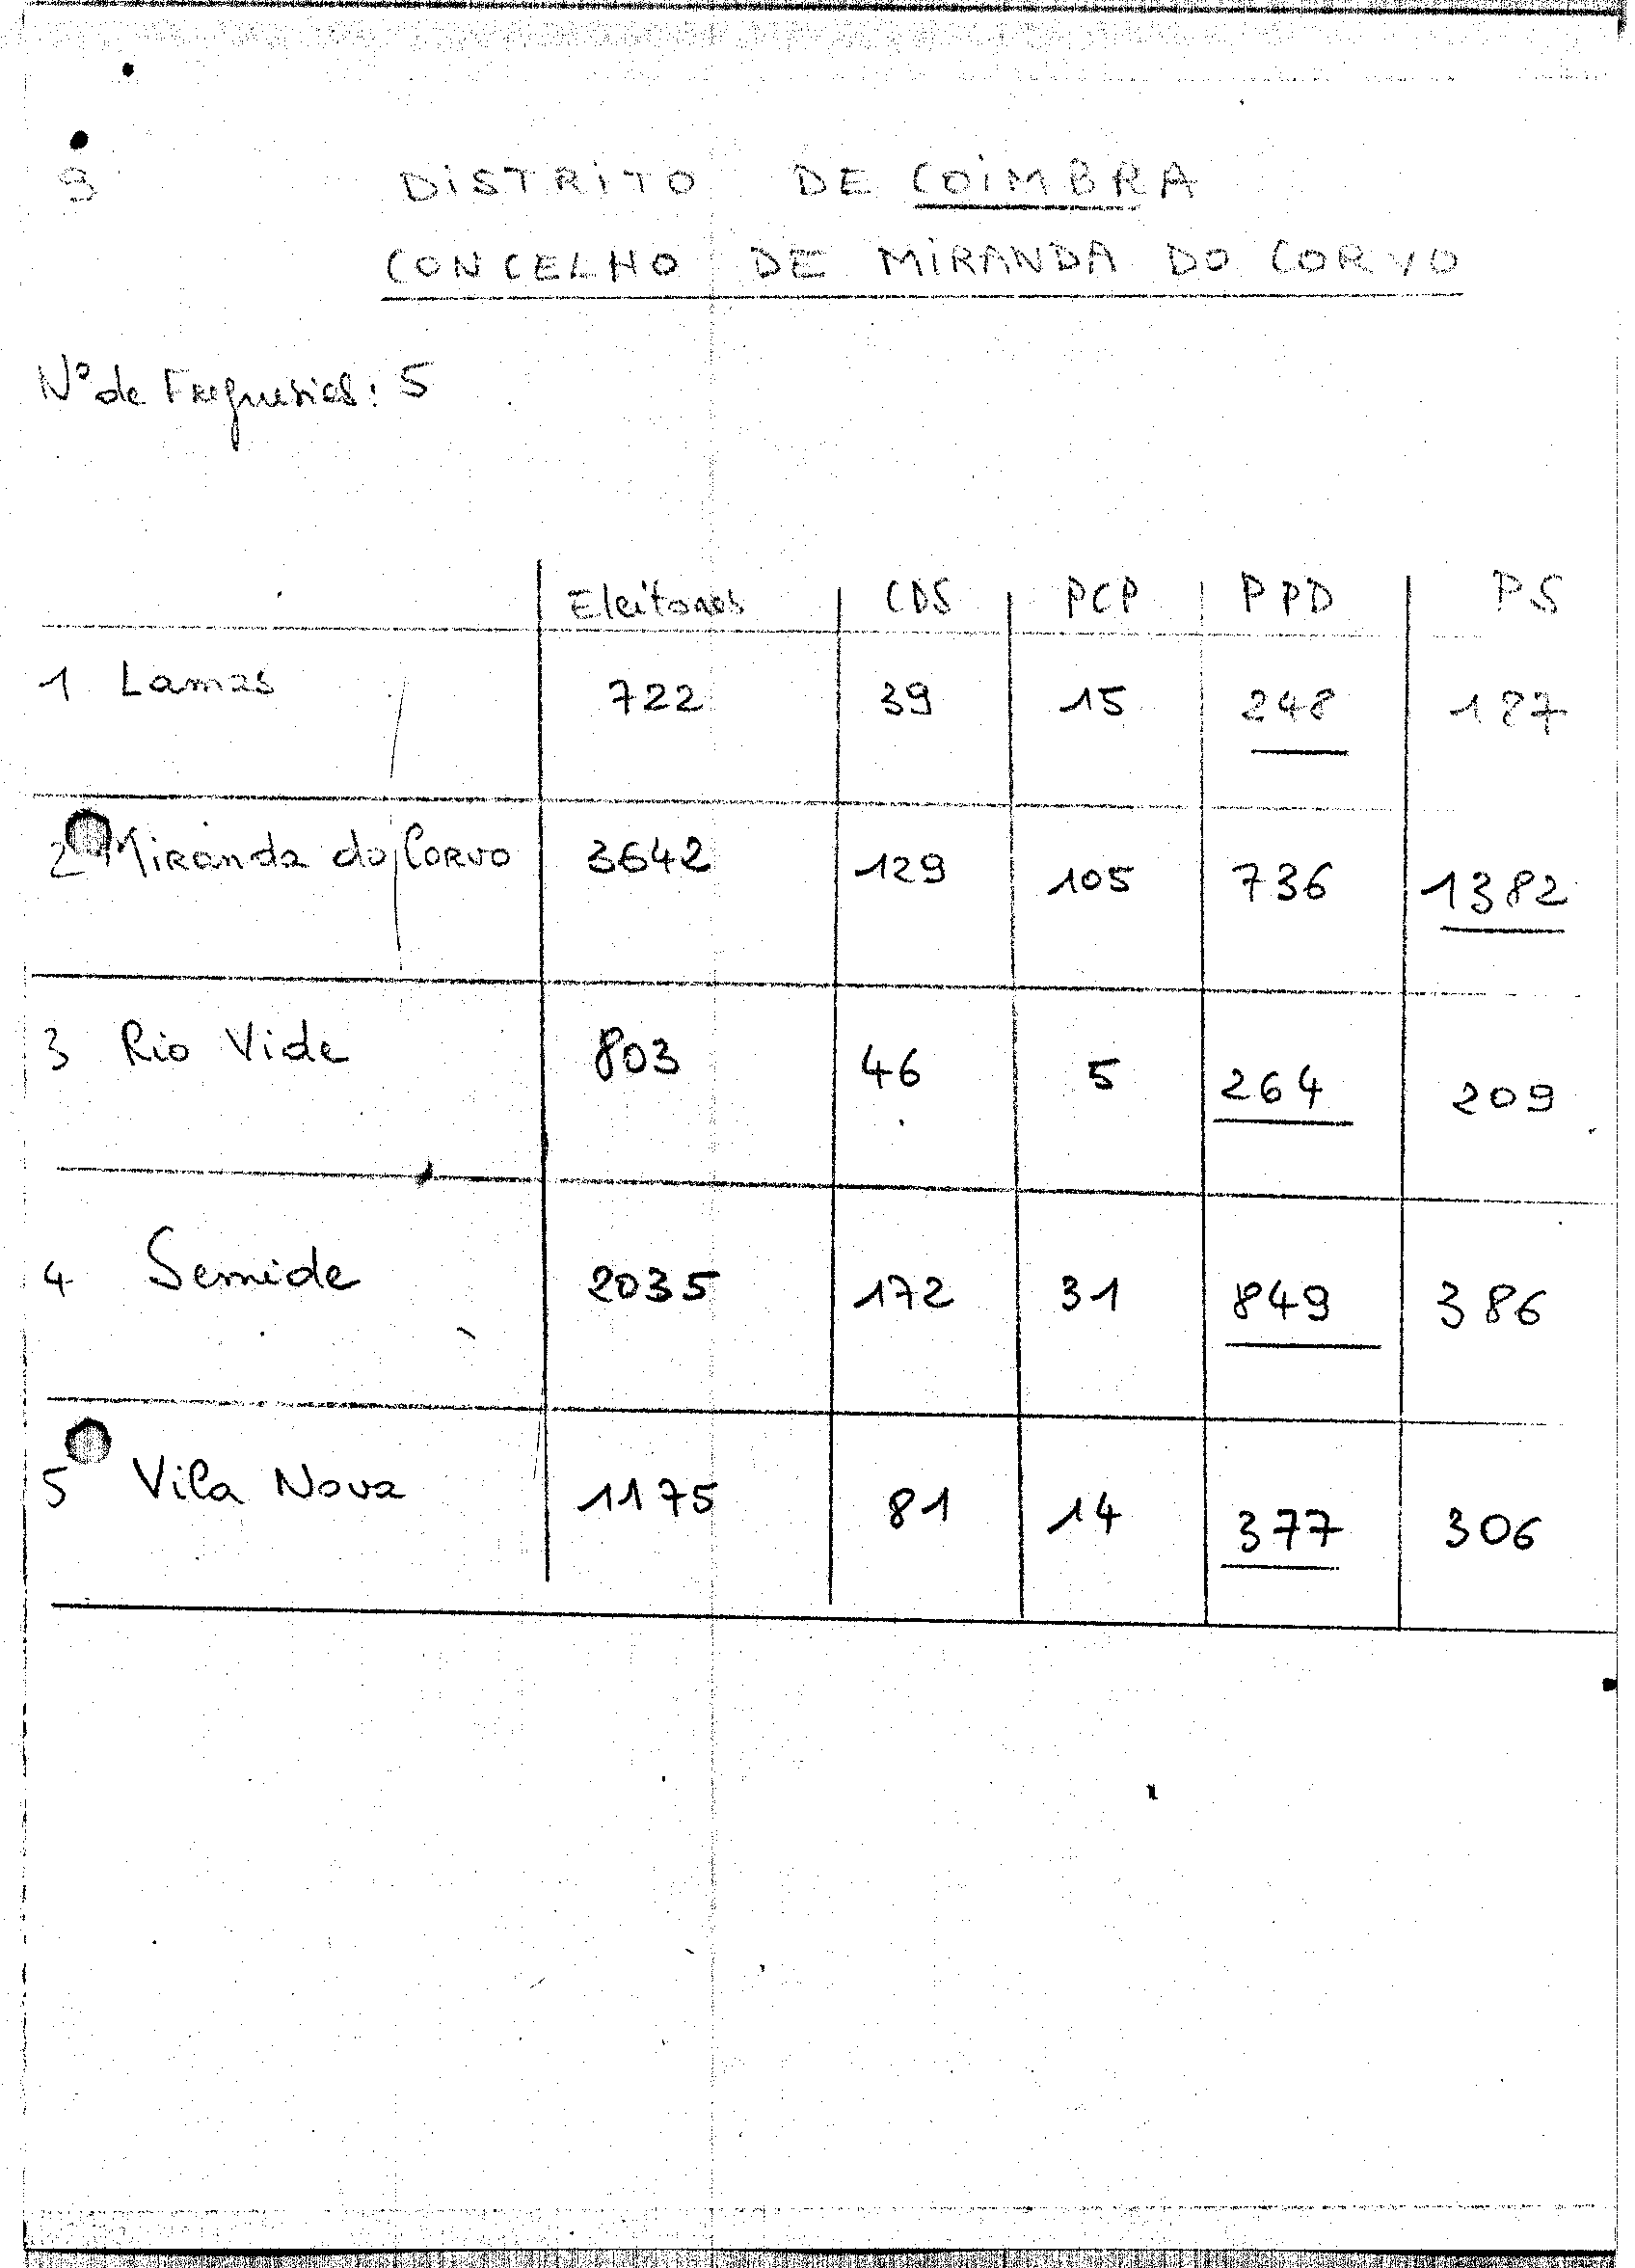 9
DiSTRiTO DE COiMBRA
CONCELHO DE MiRANDA DO CORVO
Nº de Freguesias: 5
Eleitores CDS PCP PPD PS
1 Lamas 722 39 15 248 187
2 Miranda do Corvo 3642 129 105 736 1382
3 Rio Vide 803 46 5 264 209
4 Semide 2035 172 31 849 386
5 Vila Nova 1175 81 14 377 306